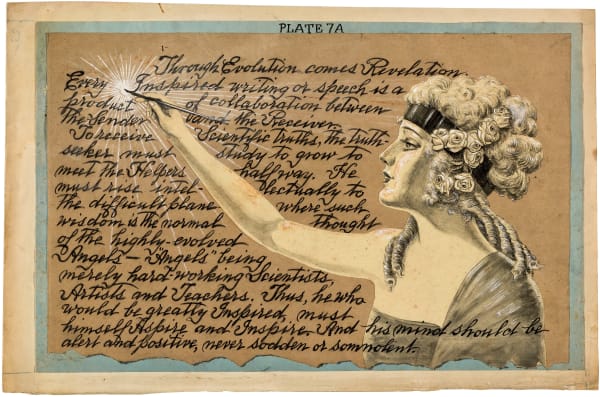 PLATE 7A
Through Evolution comes Revelation.
Every Inspired writing or speech is a
product of collaboration between
the Sender and the Receiver.
To receive Scientific Truths, the truth-
seeker must study to grow to
meet the Helpers halfway. He
must rise intel- lectually to
the difficult plane where such
wisdom is the normal thought
of the highly-evolved
"Angels" — "Angels" being
merely hard-working Scientists
Artists and Teachers. Thus, he who
would be greatly Inspired, must
himself Aspire and Inspire. And his mind should be
alert and positive, never sodden or somnolent.